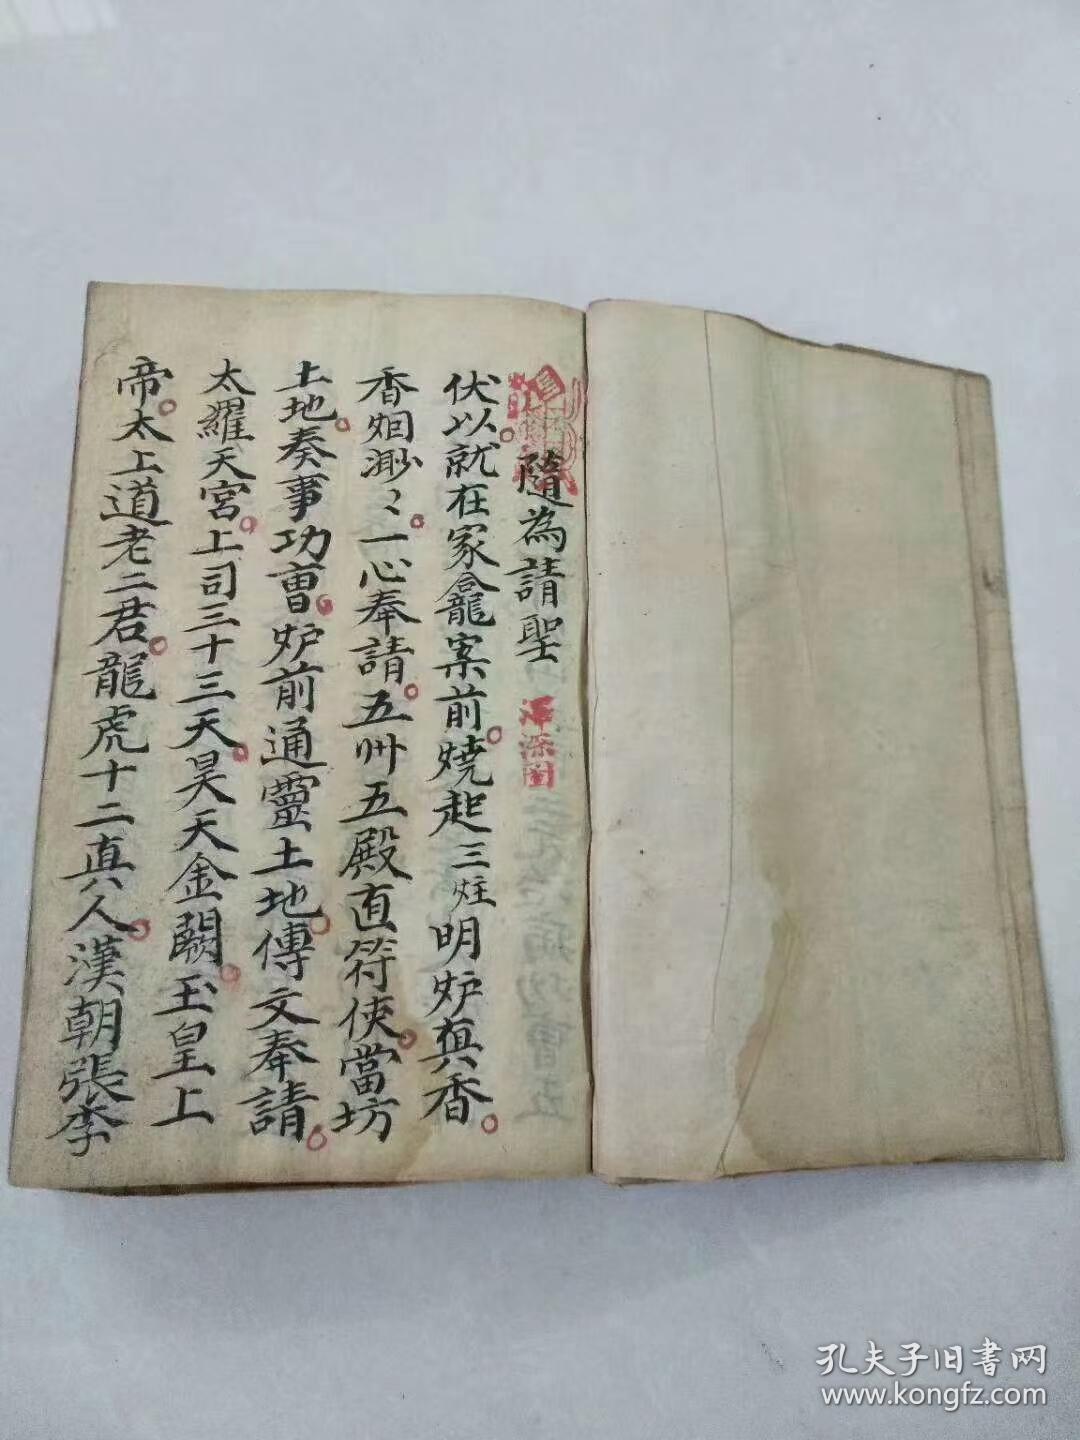 隨為請聖
伏以。就在家龕案前。燒起三炷明炉真香。
香烟渺〻。一心奉請。五卅五殿直符使。當坊
土地。奏事功曹。炉前通靈土地。傳文奉請。
太羅天宮。上司三十三天。昊天金闕。玉皇上
帝。太上道老二君。龍虎十二真人。漢朝張李
孔夫子旧書网
www.kongfz.com